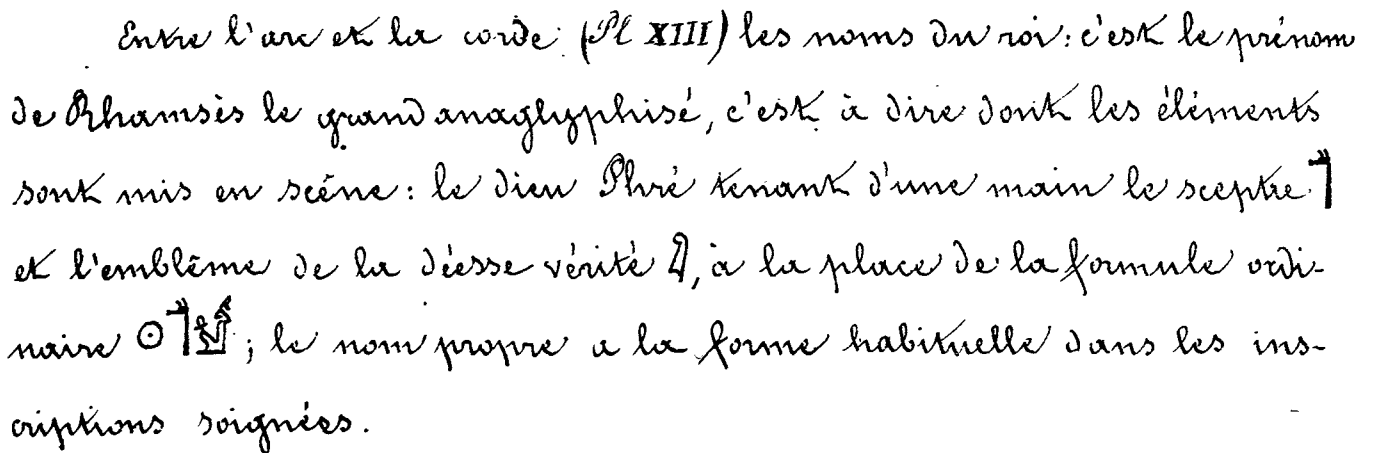 Entre l'arc et la corde (Pl XIII) les noms du roi: c'est le prénom
de Rhamsès le grand anaglyphisé, c'est à dire dont les éléments
sont mis en scêne: le dieu Phré tenant d'une main le sceptre 𓄊
et l'emblême de la déesse vérité 𓆄, à la place de la formule ordi-
naire 𓇳𓄊𓁦; le nom propre a la forme habituelle dans les ins-
criptions soignées.